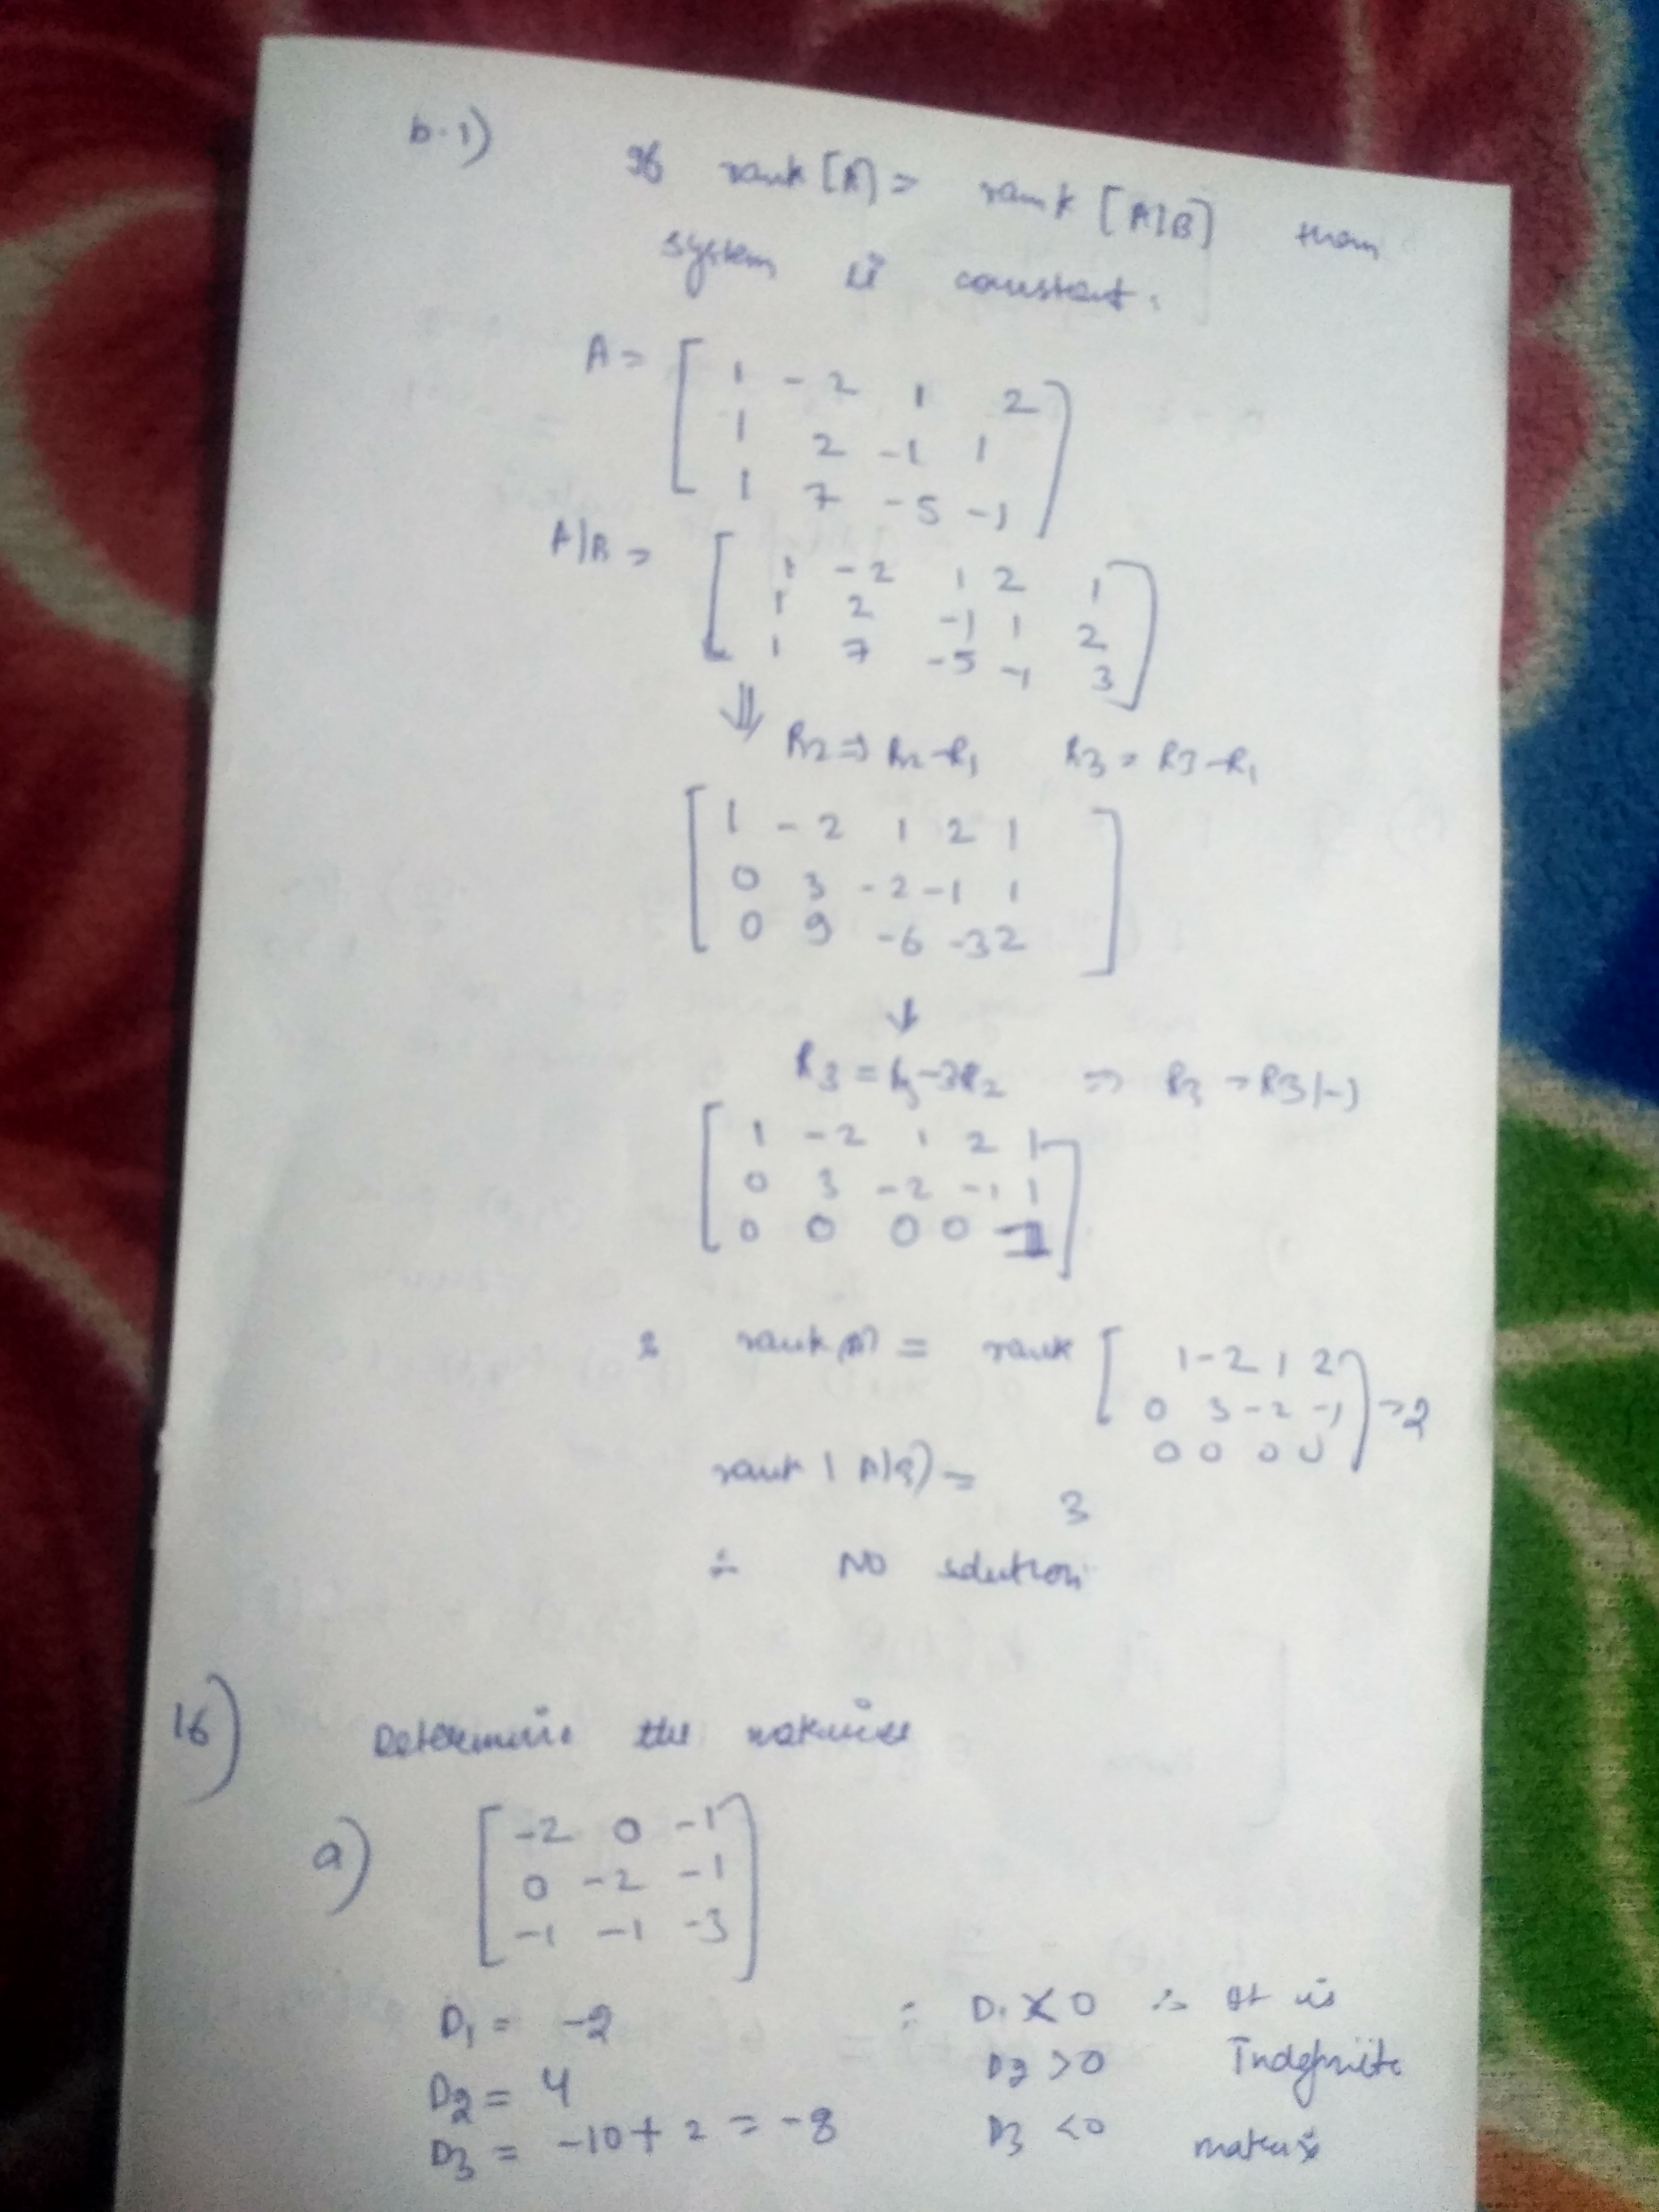 b.1) If rank [A] = rank [A|B] then
system is consistent.
A = [ 1 -2 1 2
1 2 -1 1
1 7 -5 -1 ]
A|B = [ 1 -2 1 2 1
1 2 -1 1 2
1 7 -5 -1 3 ]
⇓ R2 ⇒ R2-R1 R3 = R3-R1
[ 1 -2 1 2 1
0 3 -2 -1 1
0 9 -6 -3 2 ]
↓
R3 = R3-3R2 ⇒ R3 → R3/-1
[ 1 -2 1 2 1
0 3 -2 -1 1
0 0 0 0 1 ]
rank(A) = rank [ 1 -2 1 2
0 3 -2 -1
0 0 0 0 ] = 2
rank (A|B) = 3
∴ NO solution
16) Determine the
a) [ -2 0 -1
0 -2 -1
-1 -1 -3 ]
D1 = -2 ∵ D1 < 0 ∴ It is
D2 = 4 D2 > 0 Indefinite
D3 = -10 + 2 = -8 D3 < 0 matrix